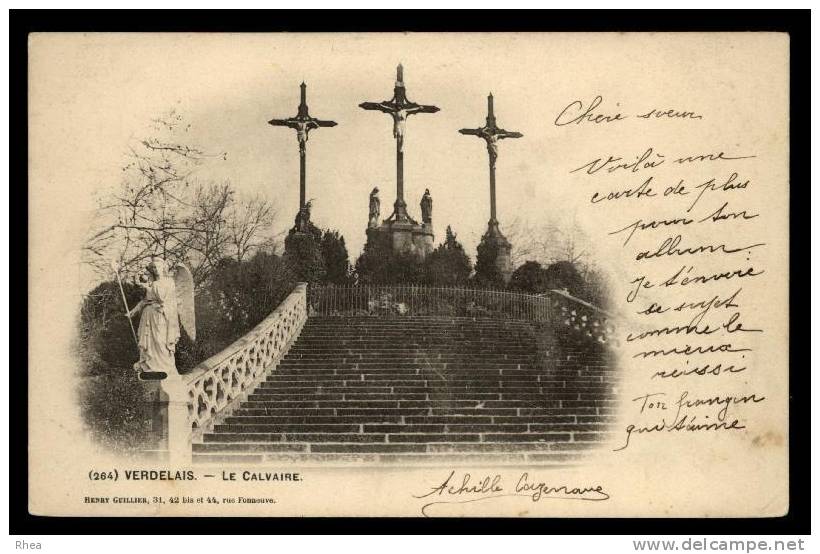 Chère sœur
Voilà une
carte de plus
pour ton
album
Je t'envoie
se sujet
comme le
mieux
réissi
Ton frangin
qui t'aime
(264) VERDELAIS. — LE CALVAIRE.
HENRY GUILLIER, 31, 42 bis et 44, rue Fonneuve.
Achille Cazenave
Rhea
www.delcampe.net